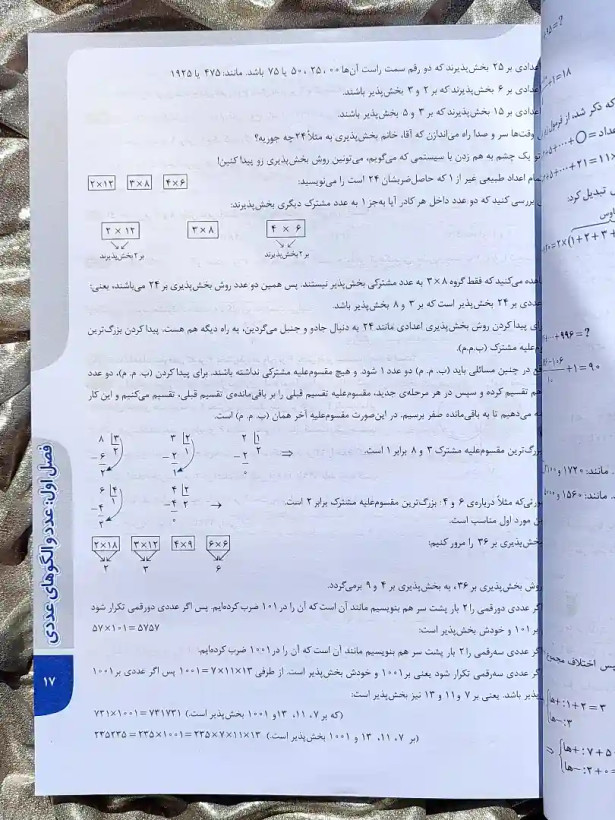 اعدادی بر ۲۵ بخش‌پذیرند که دو رقم سمت راست آن‌ها ۰۰، ۲۵، ۵۰ یا ۷۵ باشد. مانند: ۴۷۵ یا ۱۹۲۵
اعدادی بر ۶ بخش‌پذیرند که بر ۲ و ۳ بخش‌پذیر باشند.
اعدادی بر ۱۵ بخش‌پذیرند که بر ۳ و ۵ بخش‌پذیر باشند.
وقت‌ها سر و صدا راه می‌اندازن که آقا، خانم بخش‌پذیری به مثلاً ۲۴ چه جوریه؟
تو یک چشم به هم زدن با سیستمی که می‌گویم، می‌تونین روش بخش‌پذیری رو پیدا کنین!
تمام اعداد طبیعی غیر از ۱ که حاصل‌ضربشان ۲۴ است را می‌نویسید:
۴×۶ ۳×۸ ۲×۱۲
بررسی کنید که دو عدد داخل هر کادر آیا به‌جز ۱ به عدد مشترک دیگری بخش‌پذیرند:
۴ × ۶ ۳×۸ ۲ × ۱۲
بر ۲ بخش‌پذیرند بر ۲ بخش‌پذیرند
می‌کنید که فقط گروه ۸×۳ به عدد مشترکی بخش‌پذیر نیستند. پس همین دو عدد روش بخش‌پذیری بر ۲۴ می‌باشند، یعنی:
عددی بر ۲۴ بخش‌پذیر است که بر ۳ و ۸ بخش‌پذیر باشد.
پیدا کردن روش بخش‌پذیری اعدادی مانند ۲۴ به دنبال جادو و جنبل می‌گردین، یه راه دیگه هم هست، پیدا کردن بزرگ‌ترین
مقسوم‌علیه مشترک (ب.م.م).
در چنین مسائلی باید (ب. م. م) دو عدد ۱ شود و هیچ مقسوم‌علیه مشترکی نداشته باشند. برای پیدا کردن (ب. م. م)، دو عدد
هم تقسیم کرده و سپس در هر مرحله‌ی جدید، مقسوم‌علیه تقسیم قبلی را بر باقی‌مانده‌ی تقسیم قبلی، تقسیم می‌کنیم و این کار
می‌دهیم تا به باقی‌مانده صفر برسیم. در این‌صورت مقسوم‌علیه آخر همان (ب. م. م) است.
۸ ۳ ۳ ۲ ۲ ۱
-۶ ۲ -۲ ۱ -۲ ۲
۲ ۱ ۰
⇒ بزرگ‌ترین مقسوم‌علیه مشترک ۳ و ۸ برابر ۱ است.
۶ ۴ ۴ ۲
-۴ -۴ ۲
۲ ۰
→ مثلاً درباره‌ی ۶ و ۴: بزرگ‌ترین مقسوم‌علیه مشترک برابر ۲ است.
مورد اول مناسب است.
بخش‌پذیری بر ۳۶ را مرور کنیم:
۶×۶ ۴×۹ ۳×۱۲ ۲×۱۸
۶ ۳ ۲
روش بخش‌پذیری بر ۳۶، به بخش‌پذیری بر ۴ و ۹ برمی‌گردد.
اگر عددی دورقمی را ۲ بار پشت سر هم بنویسیم مانند آن است که آن را در ۱۰۱ ضرب کرده‌ایم. پس اگر عددی دورقمی تکرار شود
بر ۱۰۱ و خودش بخش‌پذیر است: ۵۷×۱۰۱=۵۷۵۷
اگر عددی سه‌رقمی را ۲ بار پشت سر هم بنویسیم مانند آن است که آن را در ۱۰۰۱ ضرب کرده‌ایم.
اگر عددی سه‌رقمی تکرار شود یعنی بر ۱۰۰۱ و خودش بخش‌پذیر است. از طرفی ۱۰۰۱=۷×۱۱×۱۳ پس اگر عددی بر ۱۰۰۱
پذیر باشد. یعنی بر ۷ و ۱۱ و ۱۳ نیز بخش‌پذیر است:
(که بر ۷، ۱۱، ۱۳ و ۱۰۰۱ بخش‌پذیر است.) ۷۳۱×۱۰۰۱=۷۳۱۷۳۱
(بر ۷، ۱۱، ۱۳ و ۱۰۰۱ بخش‌پذیر است.) ۲۳۵۲۳۵=۲۳۵×۱۰۰۱=۲۳۵×۷×۱۱×۱۳
فصل اول: عدد و الگوهای عددی
۱۷
که ذکر شد، از
تبدیل کرد:
+۹۹۶=?
+۱=۹۰
مانند: ۱۷۲۰ و
مانند: ۱۵۶۰ و
پس اختلاف مجموع